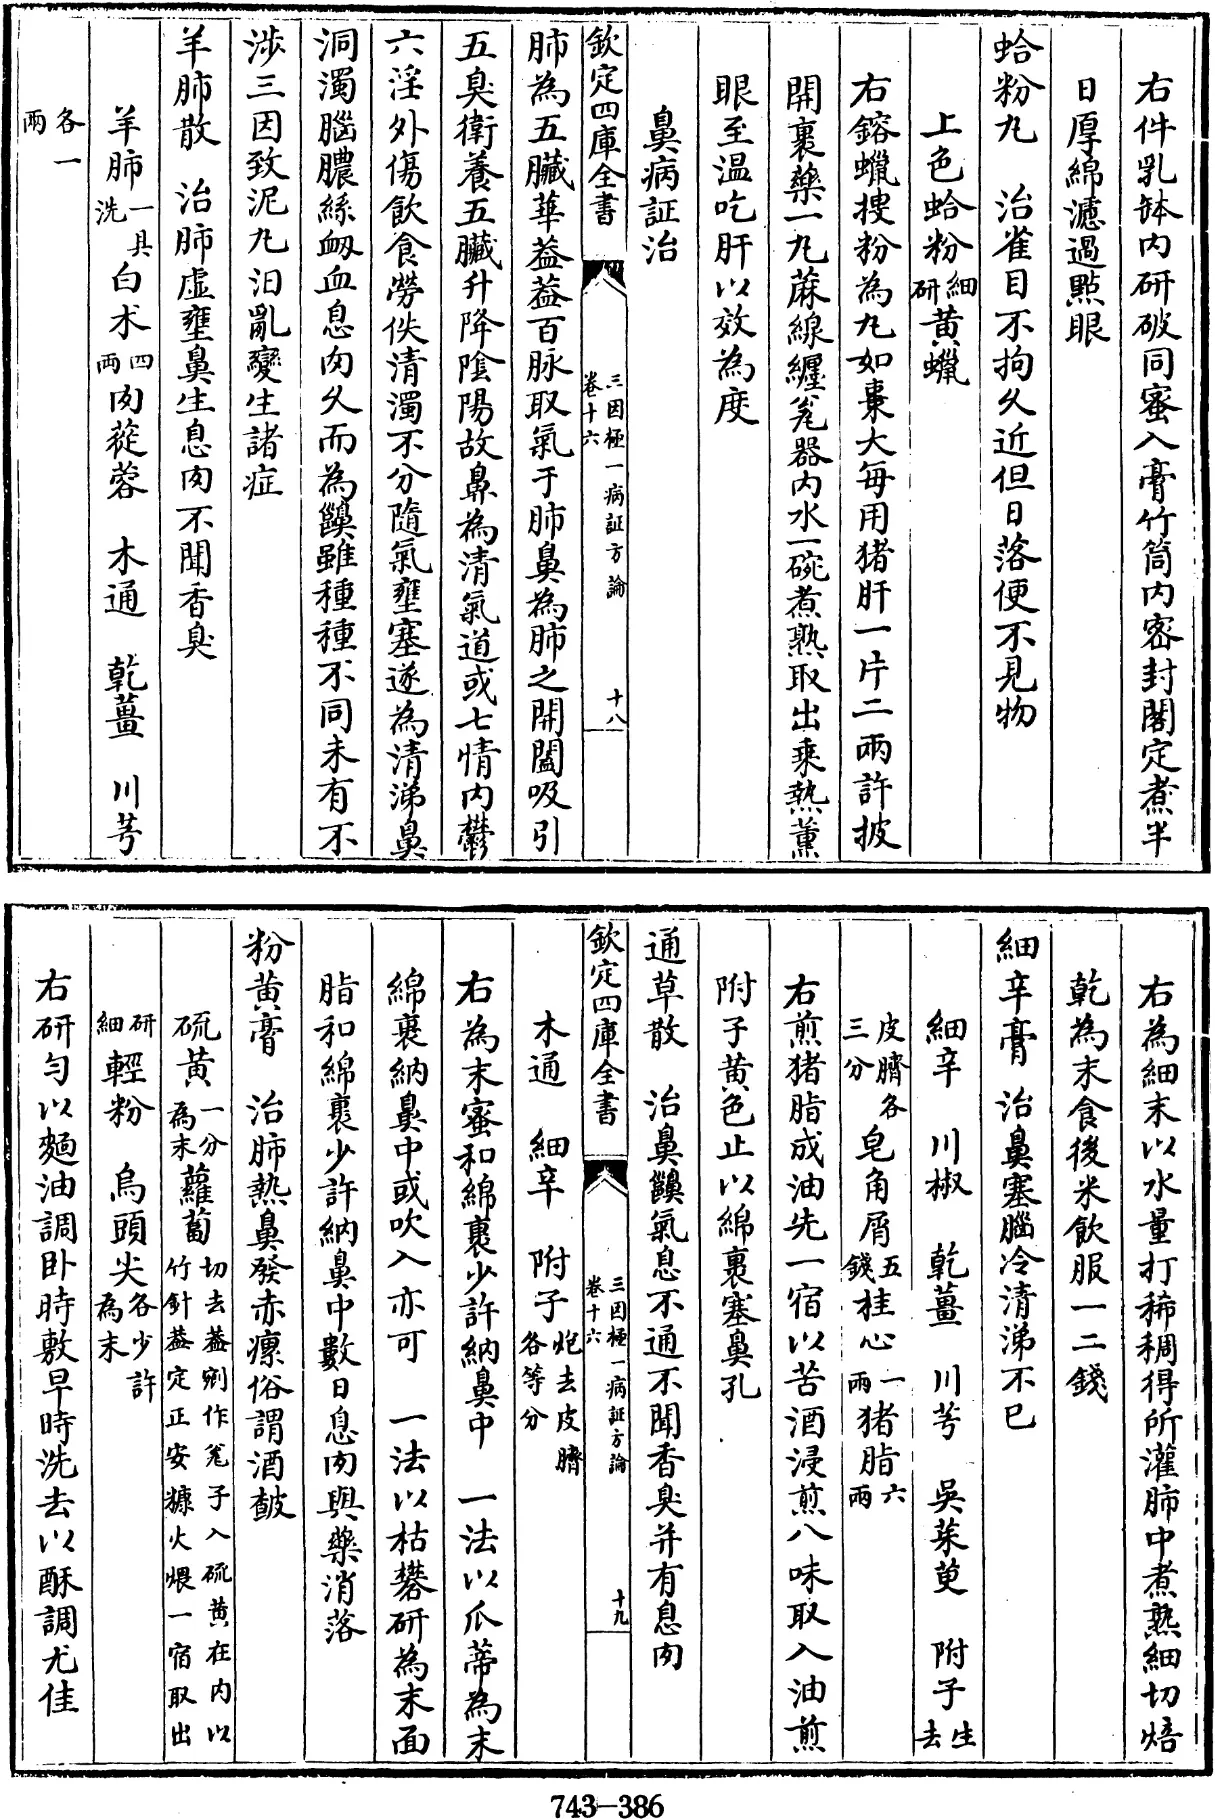 右件乳缽内研破同蜜入膏竹筒内密封閣定煮半
日厚綿濾過點眼
蛤粉丸　治雀目不拘久近但日落便不見物
上色蛤粉細研黄蠟
右鎔蠟搜粉為丸如棗大每用猪肝一片二兩許披
開裹藥一丸蔴線纏瓷器内水一碗煮熟取出乘熱薰
眼至温吃肝以效為度
鼻病証治
欽定四庫全書　三因極一病証方論卷十六　十八
肺為五臟華蓋蓋百脉取氣于肺鼻為肺之開闔吸引
五臭衛養五臟升降陰陽故鼻為清氣道或七情内鬱
六淫外傷飲食勞佚清濁不分隨氣壅塞遂為清涕鼻
洞濁腦膿絲衂血息肉久而為齆雖種種不同未有不
涉三因致泥丸汨亂變生諸症
羊肺散　治肺虚壅鼻生息肉不聞香臭
羊肺一具洗白术四兩肉蓯蓉　木通　乾薑　川芎
各一兩
右為細末以水量打稀稠得所灌肺中煮熟細切焙
乾為末食後米飲服一二錢
細辛膏　治鼻塞腦冷清涕不已
細辛　川椒　乾薑　川芎　吳茱萸　附子生去
皮臍各三分皂角屑五錢桂心一兩猪脂六兩
右煎猪脂成油先一宿以苦酒浸煎八味取入油煎
附子黄色止以綿裹塞鼻孔
通草散　治鼻齆氣息不通不聞香臭并有息肉
欽定四庫全書　三因極一病証方論卷十六　十九
木通　細辛　附子炮去皮臍各等分
右為末蜜和綿裹少許納鼻中　一法以瓜蒂為末
綿裹納鼻中或吹入亦可　一法以枯礬研為末面
脂和綿裹少許納鼻中數日息肉與藥消落
粉黄膏　治肺熱鼻發赤瘰俗謂酒皶
硫黄一分為末蘿蔔切去蓋剜作瓮子入硫黄在内以竹針蓋定正安糠火煨一宿取出
研細輕粉　烏頭尖各少許為末
右研勻以麵油調卧時敷早時洗去以酥調尤佳
743-386